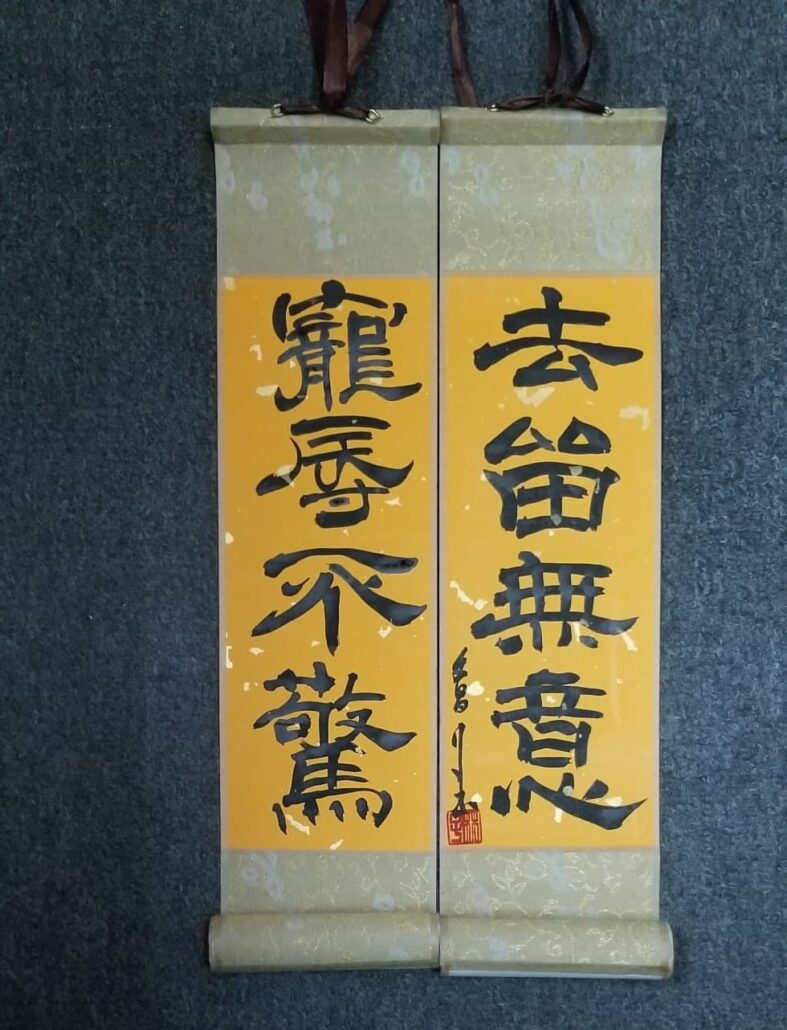 寵辱不驚
去留無意